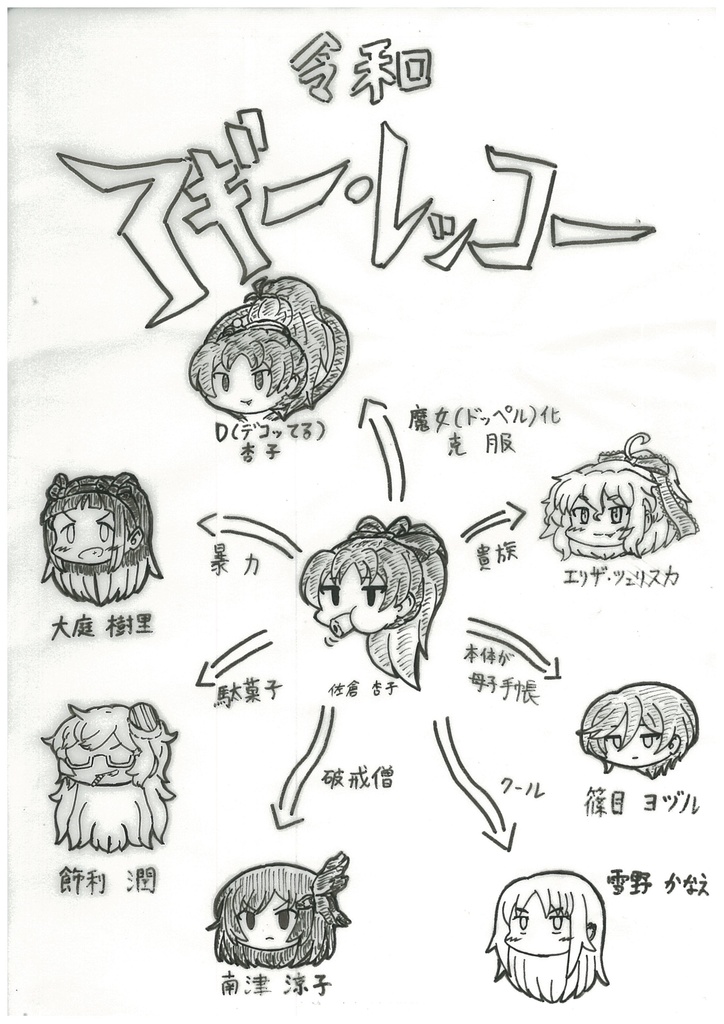 令和
アギー・レッコー
D(デコッてる)
杏子
魔女(ドッペル)化
克服
暴力
貴族
大庭 樹里
エリザ・ツェリスカ
駄菓子
佐倉 杏子
本体が
母子手帳
破戒僧
クール
篠目 ヨヅル
飾利 潤
雪野 かなえ
南津 涼子